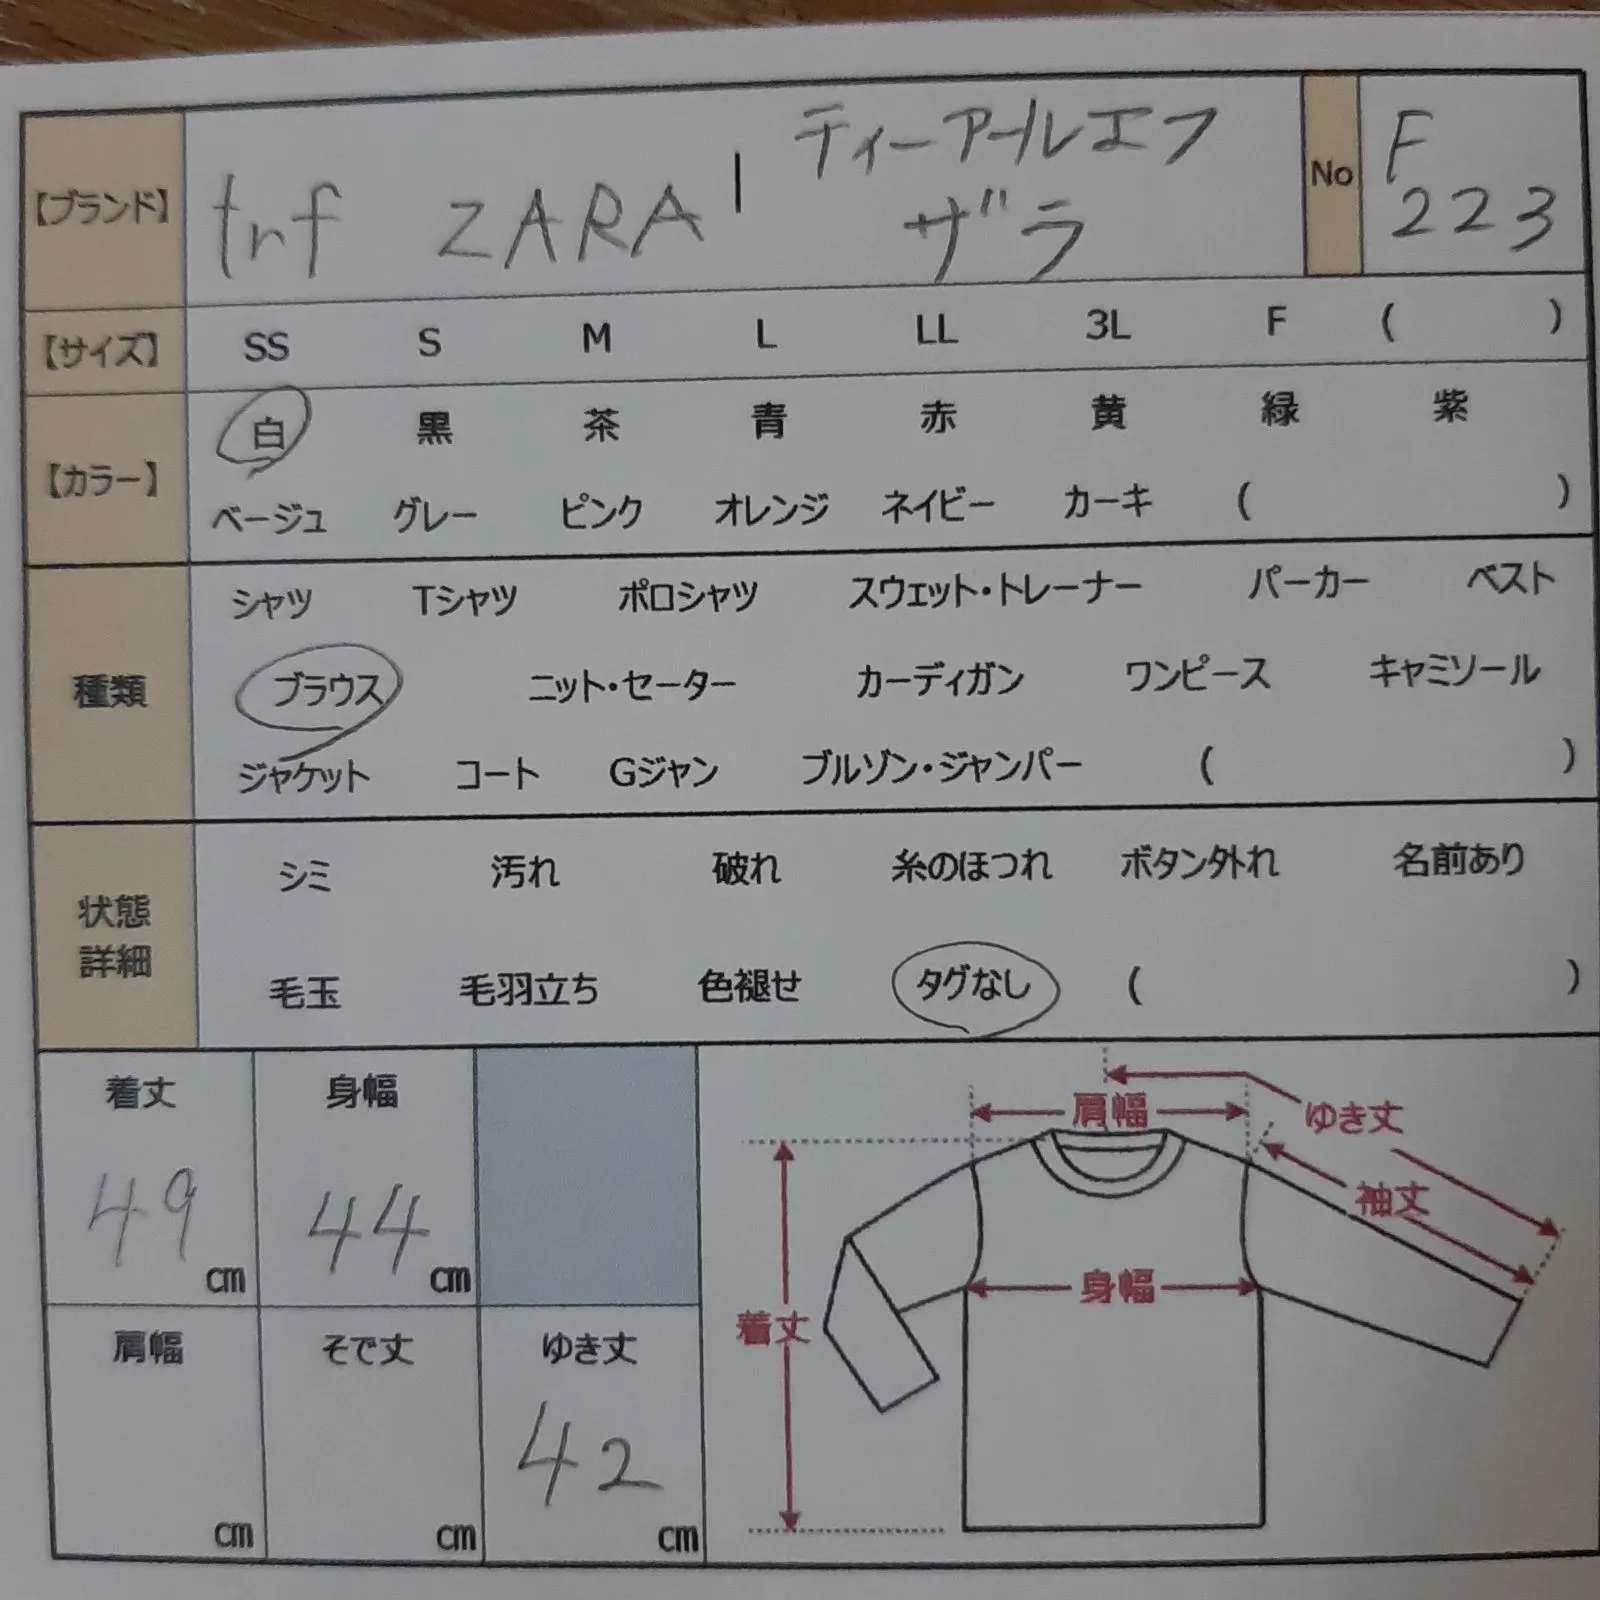 【ブランド】 trf ZARA | ティーアールエフ ザラ No F 223
【サイズ】 SS S M L LL 3L F ( )
【カラー】 白 黒 茶 青 赤 黄 緑 紫
ベージュ グレー ピンク オレンジ ネイビー カーキ ( )
種類 シャツ Tシャツ ポロシャツ スウェット・トレーナー パーカー ベスト
ブラウス ニット・セーター カーディガン ワンピース キャミソール
ジャケット コート Gジャン ブルゾン・ジャンパー ( )
状態
詳細
シミ 汚れ 破れ 糸のほつれ ボタン外れ 名前あり
毛玉 毛羽立ち 色褪せ タグなし ( )
着丈 身幅
49 cm 44 cm
肩幅 そで丈 ゆき丈
cm cm 42 cm
肩幅 ゆき丈
袖丈
身幅
着丈